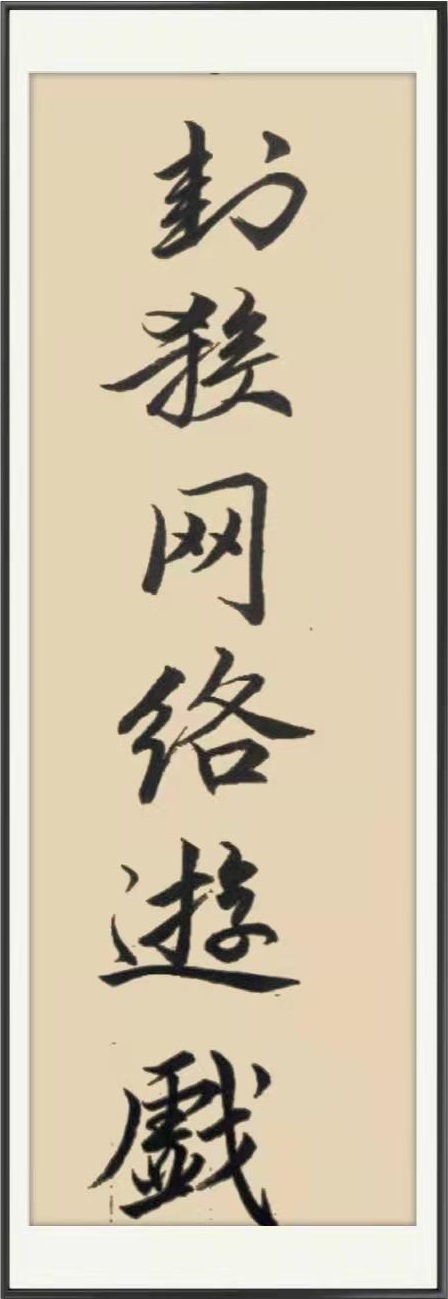 封殺网络遊戯